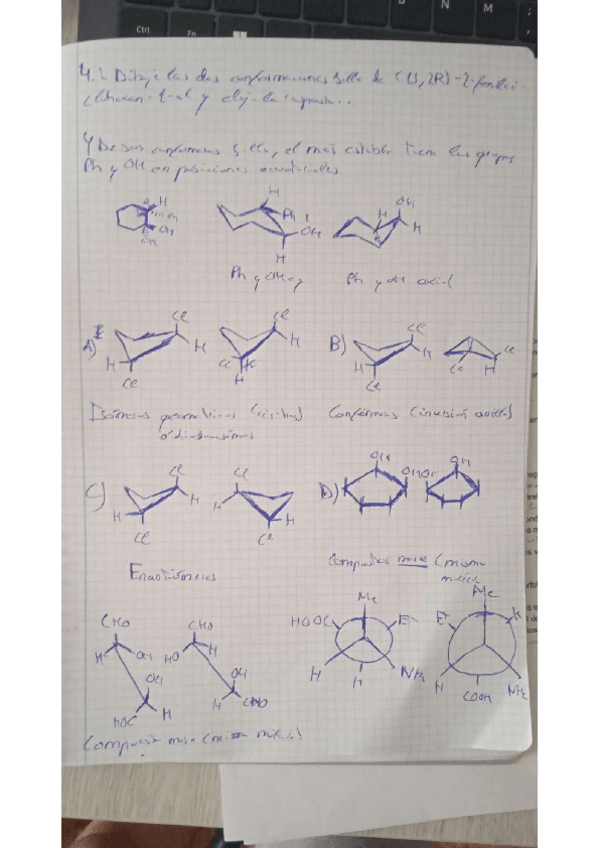 Ctrl
Fn
N
M
4.2 Dibuje las dos conformaciones silla de (1S,2R)-2-fenilci
clohexan-1-ol y elija la
4 De sus confórmeros silla, el más estable tiene los grupos
Ph y OH en posiciones ecuatoriales.
H
Ph
OH
H
Ph
OH
H
OH
H
H
Ph y OH
Ph y OH axial
A)
Cl
H
H
Cl
Cl
H
Cl
H
B)
Cl
H
H
Cl
Cl
Cl
H
Isómeros geométricos (cis-trans)
Confórmeros (inversión anillo)
o diastereómeros
C)
Cl
H
H
Cl
Cl
H
H
Cl
D)
OH
OH
OH
OH
Enantiómeros
Compuesto meso (misma
molécula
CHO
H
OH
OH
HOC
H
CHO
HO
H
OH
H
CHO
Me
HOOC
Et
H
NH2
H
Me
Et
H
H
NH2
COOH
Compuesto meso (misma molécula)